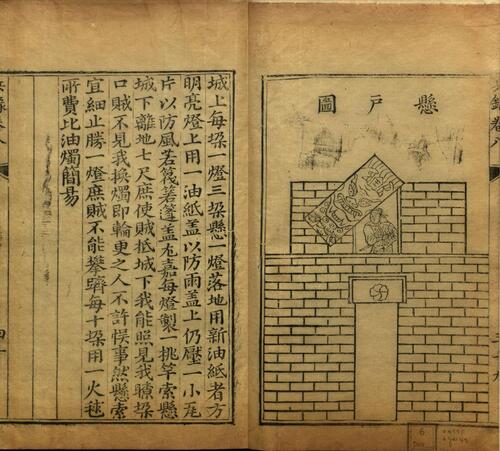 懸戶圖
城上每垜一燈三垜懸一燈落地用新油紙者方
明亮燈上用一油紙盖以防雨盖上仍壓一小瓦
片以防風若筏箬篷盖尤嘉每燈製一挑竿索懸
城下離地七尺庶使賊抵城下我能照見我瞭垜
口賊不見我換燭即輪更之人不許悞事然懸索
宜細止勝一燈庶賊不能攀躋每十垜用一火毬
所費比油燭簡易